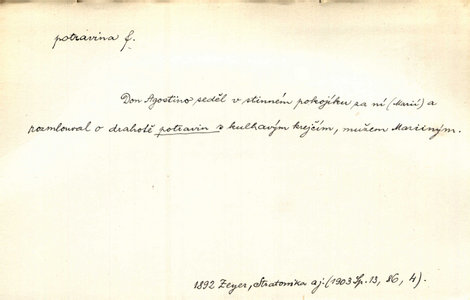 potravina f.
Don Agostino seděl v stinném pokojíku za ní (Marií) a
rozmlouval o drahotě potravin s kulhavým krejčím, mužem Mariiným.
1892 Zeyer, Stratonika aj. (1903 Sp. 13, 86, 4).